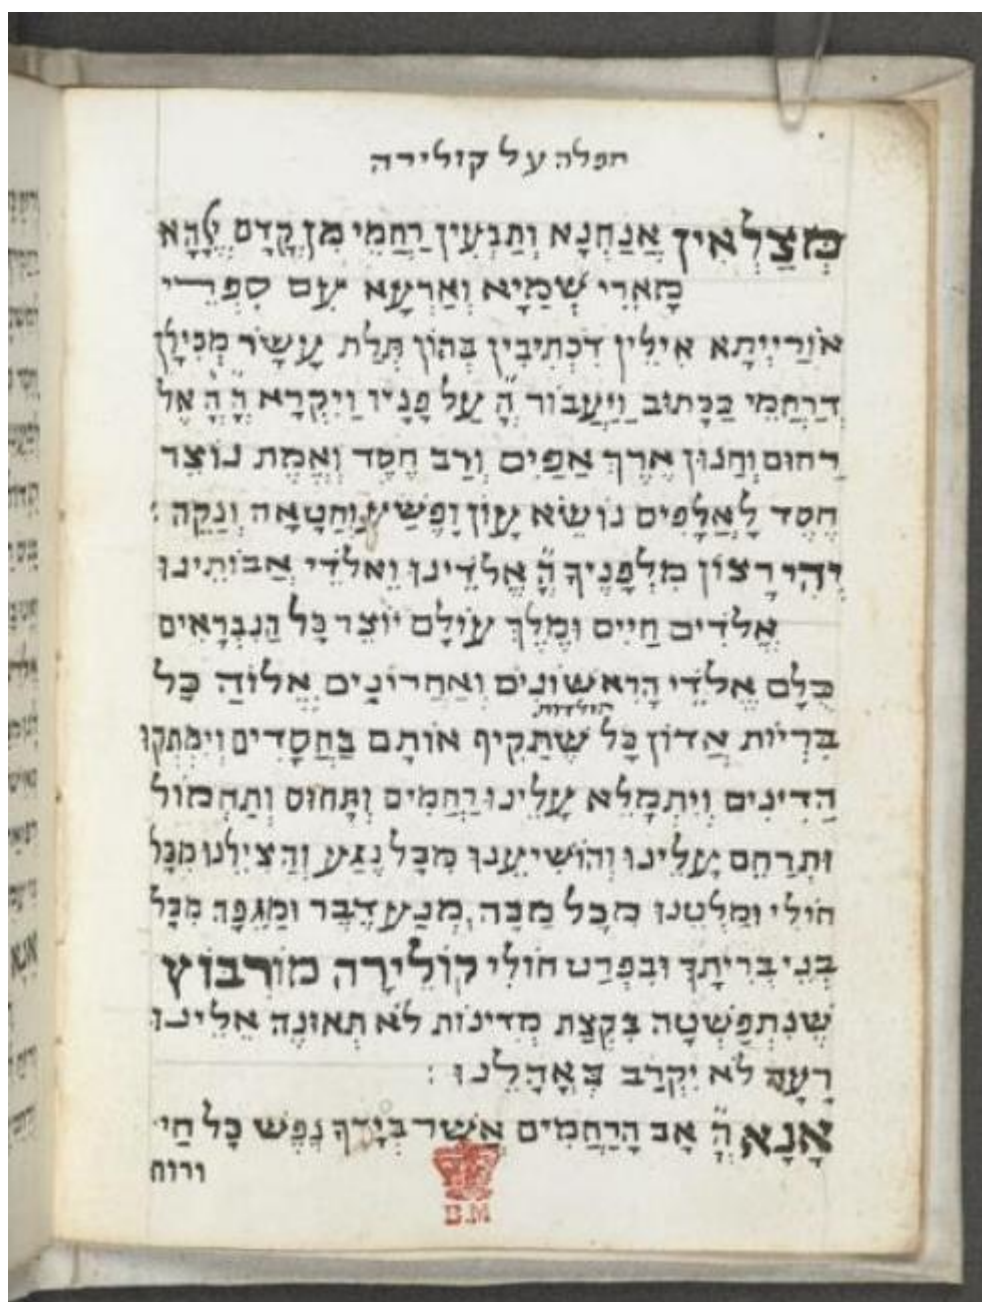 תפלה על קולירה
מְצַלְאִין אֲנַחְנָא וְתַבְעִין רַחֲמֵי מִן קֳדָם אֱלָהָא
מָארֵי שְׁמַיָא וְאַרְעָא עִם סִפְרֵי
אוֹרַיְיתָא אִילֵין דִכְתִיבִין בְּהוֹן תְּלַת עֲשַׂר מְכִילָן
דְרַחֲמֵי כַּכָּתוּב וַיַעֲבוֹר הָ עַל פָּנָיו וַיִקְרָא הָ הָ אֵל
רַחוּם וְחַנוּן אֶרֶךְ אַפַּיִם וְרַב חֶסֶד וְאֱמֶת נוֹצֵר
חֶסֶד לָאֲלָפִים נוֹשֵׂא עָוֹן וָפֶשַׁע וְחַטָאָה וְנַקֵה :
יְהִי רָצוֹן מִלְפָנֶיךָ הָ אֱלֹדֵינוּ וֵאלֹדֵי אֲבוֹתֵינוּ
אֱלֹדִים חַיִים וּמֶלֶךְ עוֹלָם יוֹצֵר כָּל הַנִבְרָאִים
כֻּלָם אֱלֹדֵי הָרִאשׁוֹנִים וְאַחֲרוֹנִים אֱלוֹהַ כָּל
תולדות
בְּרִיוֹת אֲדוֹן כָּל שֶׁתַקִיף אוֹתָם בַּחֲסָדִים וְיִמְתְקוּ
הַדִינִים וְיִתְמָלֵא עָלֵינוּ רַחֲמִים וְתָחוּס וְתַחְמוֹל
וּתְרַחֵם עָלֵינוּ וְהוֹשִׁיעֵנוּ מִכָּל נֶגַע וְהַצִילֵנוּ מִכָּל
חוֹלִי וּמַלְטֵנוּ מִכָּל מַכָּה, מְנַע דֶבֶר וּמַגֵפָה מִכָּל
בְּנֵי בְּרִיתֶךָ וּבִפְרַט חוֹלִי קוֹלֵירָה מוֹרְבּוּץ
שֶׁנִתְפַּשְׁטָה בִּקְצַת מְדִינוֹת לֹא תְאוּנֶה אֵלֵינוּ
רָעָה לֹא יִקְרַב בְּאָהֳלֵנוּ :
אָנָא הָ אַב הָרַחֲמִים אֲשֶׁר בְּיָדְךָ נֶפֶשׁ כָּל חַי
ורוח
B.M